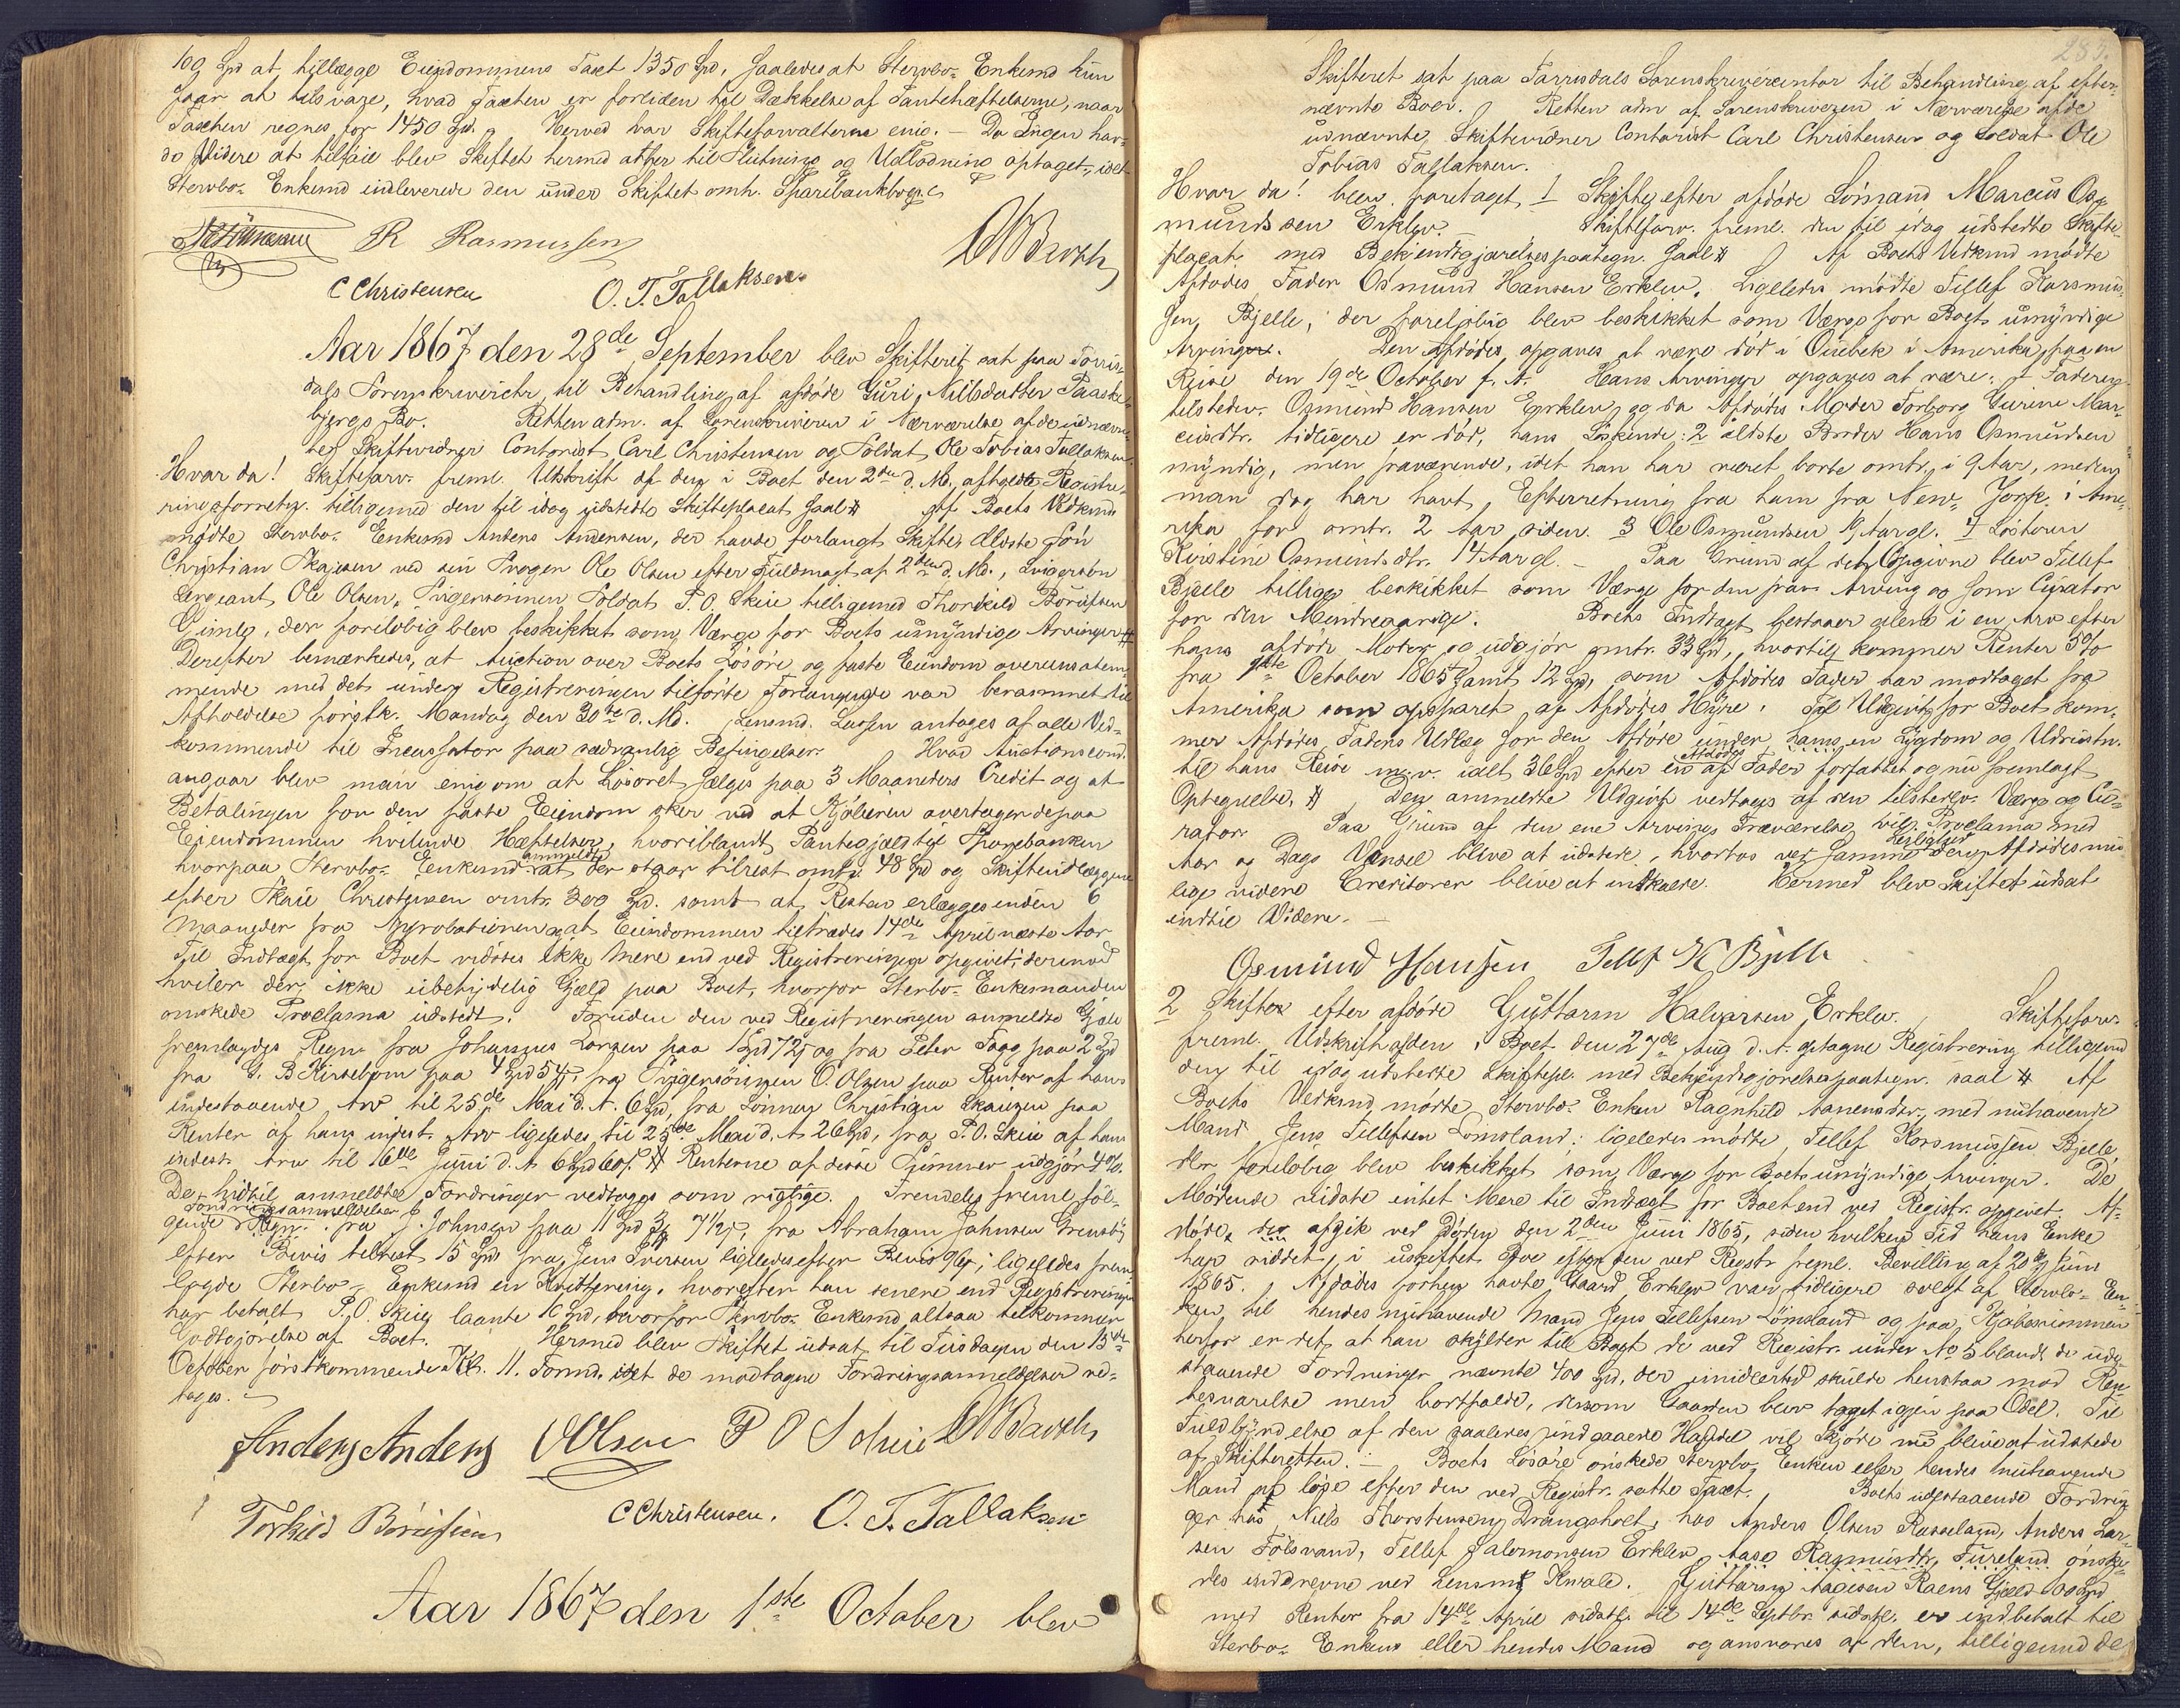 100 Spd at tillægge Eiendommens Taxt 1350 Spd, saaledes at Stervbo- Enkemd kun
faar at tilsvare, hvad Taxten er forliden til Dækkelse af Pantehæftelserne, naar
Taxten regnes for 1450 Spd. Herved var Skifteforvalteren enig. - Da Ingen hav-
de Videre at tilføie blev Skiftet hermed atter til Slutning og Udlodning optaget, idet
Stervbo- Enkemd indleverede den under Skiftet omh. Sparebankbog.
R Rasmussen
C Christensen O. T. Tallaksen
Aar 1867 den 28de September blev Skifteret sat paa Torris-
dals Sorenskrivercktr. til Behandling af afdøde Guri Nilsdatter Paaske-
bjergs Bo. Retten adm. af Sorenskriveren i Nærværelse af de udnævn-
te Skiftevidner Contorist Carl Christensen og Soldat Ole Tobias Tallaksen.
Hvor da! Skifteforv. freml. Udskrift af den i Boet den 2den d. Md. afholdte Registre-
ringsforretn. tilligemed den til idag udstedte Skifteplacat saal # Af Boets Vedkmd
mødte Stervbo- Enkemd Anders Andersen, der havde forlangt Skifte, Ældste Søn
Christian Skajesen ved sin Svoger Ole Olsen efter Fuldmagt af 2den d. Md., Svigersøn
Sergeant Ole Olsen, Svigersønnen Soldat P. O. Skeie tilligemed Thorkild Børufsen
Vimle, der foreløbig blev beskikket som Værge for Boets umyndige Arvinger #
Derefter bemærkedes, at Auction over Boets Løsøre og faste Eiendom overensstem-
mende med det under Registreringen tilførte Forlangende var berammet til
Afholdelse førstk. Mandag den 30te d. Md. Lensmd. Larsen antages af alle Ved-
kommende til Incassator paa sædvanlig Betingelser. Hvad Auctionscond.
angaar blev man enig om at Løsøret sælges paa 3 Maaneders Credit og at
Betalingen for den faste Eiendom sker ved at Kjøberen overtager de paa
Eiendommen hvilende Hæftelser, hvoriblandt Pantegjæld til Sparebanken
hvorpaa Stervbo- Enkemd anmeldte at der staar tilrest omtr. 48 Spd og Skifteudlæggene
efter Skaie Christensen omtr. 300 Spd. samt at Resten erlægges inden 6
Maaneder fra Approbationen og at Eiendommen tiltrædes 14de April næste Aar
Til Indtægt for Boet vidstes ikke Mere end ved Registreringen opgivet; derimod
hviler der ikke ubetydelig Gjæld paa Boet, hvorfor Sterbo- Enkemanden
ønskede Proclama udstedt. Foruden den ved Registreringen anmeldte Gjæld
fremlagdes Regn. fra Johannes Larsen paa 1 Spd 72 s og fra Peter Fagg paa 2 Spd
fra G. B Kirsebom paa 4 Spd 54 s, fra Svigersønnen O. Olsen paa Renter af hans
indestaaende Arv til 25de Mai d. A. 6 Spd, fra Sønnen Christian Skaugen paa
Renter af hans indest. Arv ligeledes til 25de Mai d. A. 26 Spd, fra P. O. Skeie af hans
indest. Arv til 16de Juni d. A 6 Spd 60 s. # Renterne af disse Summer udgjør 4%.
De hidtil anmeldte Fordringer vedtoges som rigtige. Fremdeles freml. føl-
gende Fordringsanmeldelser: Regn. fra J. Johnsen paa 11 Spd 3 # 7 1/2 s, fra Abraham Johnsen
efter Bevis tilrest 15 Spd fra Jens Iversen ligeledes efter Bevis 9 Spd; ligeledes frem-
lagde Sterbo- Enkemd en Kvittering, hvorefter han senere end Registreringen
har betalt P. O. Skeie laante 10 Spd, hvorfor Stervbo- Enkemd altsaa tilkommer
Godtgjørelse af Boet. Hermed blev Skiftet udsat til Tirsdagen den 15de
October førstkommende Kl. 11. Formd. idet de modtagne Fordringsanmeldelser ved-
tages. -
Anders Anders OOlsen P O Scheie
Torkild Børufsen C Christensen. O. T. Tallaksen
Aar 1867 den 1ste October blev
283.
Skifteret sat paa Torrisdals Sorenskrivercontor til Behandling af efter-
nævnte Boer. Retten adm af Sorenskriveren i Nærværelse af de
udnævnte Skiftevidner Contorist Carl Christensen og Soldat Ole
Tobias Tallaksen.
Hvor da! blev foretaget 1 Skifte efter afdøde Sømand Marcus Os-
mundssen Erklev. Skifteforv. freml. den til idag udstedte Skifte-
placat med Bekjendtgjørelsespaategn. saal # Af Boets Vedkmd mødte
Afdødes Fader Osmund Hansen Erklev. Ligeledes mødte Tellef Korsmus-
sen Bjelle, der foreløbig blev beskikket som Værge for Boets umyndige
Arvinger. Den Afdøde opgaves at være død i Quebek i Amerika paa en
Reise den 19de October f. A. Hans Arvinger opgaves at være: 1 Faderen
tilstedev. Osmund Hansen Erklev, og da Afdødes Moder Torborg Gurine Mar-
cusdtr. tidligere er død, hans Søskende: 2 ældste Broder Hans Osmundsen
myndig, men fraværende, idet han har været borte omtr. i 9 Aar, medens
man dog har havt Efterretning fra ham fra New- York i Ame-
rika for omtr. 2 Aar siden. 3 Ole Osmundsen 19 Aar gl. 4 Søsteren
Kirstine Osmundsdtr. 14 Aar gl. - Paa Grund af det Opgivne blev Tellef
Bjelle tillige beskikket som Værge for den frav. Arving og som Curator
for den Mindreaarige. Boets Indtægt bestaaer alene i en Arv efter
hans afdøde Moder og udgjør omtr. 33 Spd, hvortil kommer Renter 5%
fra 1ste October 1865 samt 12 Spd, som Afdødes Fader har modtaget fra
Amerika som opsparet af Afdødes Hyre. Til Udgivt for Boet kom-
mer Afdødes Faders Udlæg for den Afdøde under hans en Sygdom og Udrustn.
til hans Reise m. v. ialt 36 Spd efter en af Afdødes Fader forfattet og nu fremlagt
Optegnelse. # Den anmeldte Udgivt vedtages af den tilstedev. Værge og Cu-
rator Paa Grund af den ene Arvings Fraværelse vil Proclama med
Aar og Dags Varsel blive at udstede, hvorhos ved Samme Leilighed den Afdødes mu-
lige videre Creditorer blive at indkalde. Hermed blev Skiftet udsat
indtil Videre. -
Osmund Hansen Tellef K Bjelle
2 Skifte efter afdøde Guttorm Halvorsen Erklev. Skifteforv.
freml. Udskrift af den i Boet den 27de Aug d. A. optagne Registrering tilligemed
den til idag udstedte Skiftepl. med Bekjendtgjørelsespaategn. saal # Af
Boets Vedkmd mødte Stervbo- Enken Ragnhild Aanensdtr. med nuhavende
Mand Jens Tellefsen Lømsland; ligeledes mødte Tellef Korsmussen Bjelle
der foreløbig blev beskikket som Værge for Boets umyndige Arvinger. De
Mødende vidste intet Mere til Indtægt for Boet end ved Registr. opgivet. Af-
døde, der afgik ved Døden den 2den Juni 1865, siden hvilken Tid hans Enke
har siddet i uskiftet Boe efter den ved Registr freml. Bevilling af 20de Juni
1865. Afdødes forhen havte Gaard Erklev var tidligere solgt af Stervbo- En-
ken til hendes nuhavende Mand Jens Tellefsen Lømsland og paa Kjøbesummen
herfor er det at han skylder til Boet de ved Registr. under No 5 blandt de ude-
staaende Fordringer nævnte 400 Spd, der imidlertid skulde henstaa mod Ren-
tesvarelse men bortfalde, dersom Gaarden blev taget igjen paa Odel. Til
Fuldbyrdelse af den saaledes indgaaede Handel vil Skjøde nu blive at udstede
af Skifteretten. - Boets Løsøre ønskede Stervbo- Enken eller hendes nuhavende
Mand at løse efter den ved Registr. satte Taxt. Boets udestaaende Fordrin-
ger hos Niels Thorstensen Drangsholt, hos Anders Olsen Rosseland, Anders Lar-
sen Følsvand, Tellef Salomonsen Erklev, Aase Rasmusdtr. Tureland ønske-
des inddrevne ved Lensmd Kvale. Guttorm Aanesen Raens Gjæld 100 Spd
med Renter fra 14de April sidstl. til 14de Septbr. sidstl. er indbetalt til
Sterbo- Enken eller hendes Mand og ansvares af dem, tilligemed de